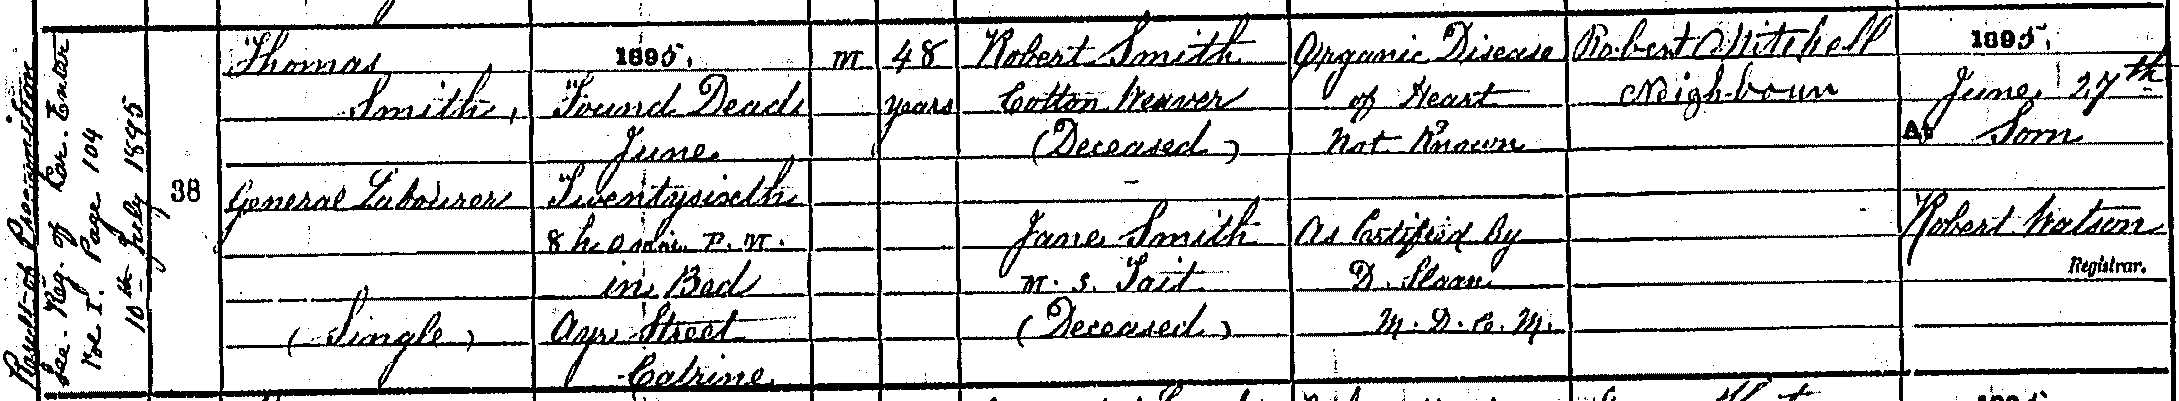 Result of Precognition
See. Reg. of Cor. Enter
Vol I. Page 104
10th July 1895
38
Thomas
Smith,
General Labourer
(Single)
1895.
Found Dead
June
Twentysixth
8 h 0 min. P. M.
in Bed
Ayr Street
Catrine
M
48
years
Robert Smith
Cotton Weaver
(Deceased)
Jane Smith
M. S. Tait
(Deceased)
Organic Disease
of Heart
Not Known
As Certified By
D. Sloan
M. D. C. M.
Robert Mitchell
Neighbour
1895.
June 27th
At Sorn
Robert Watson
Registrar.